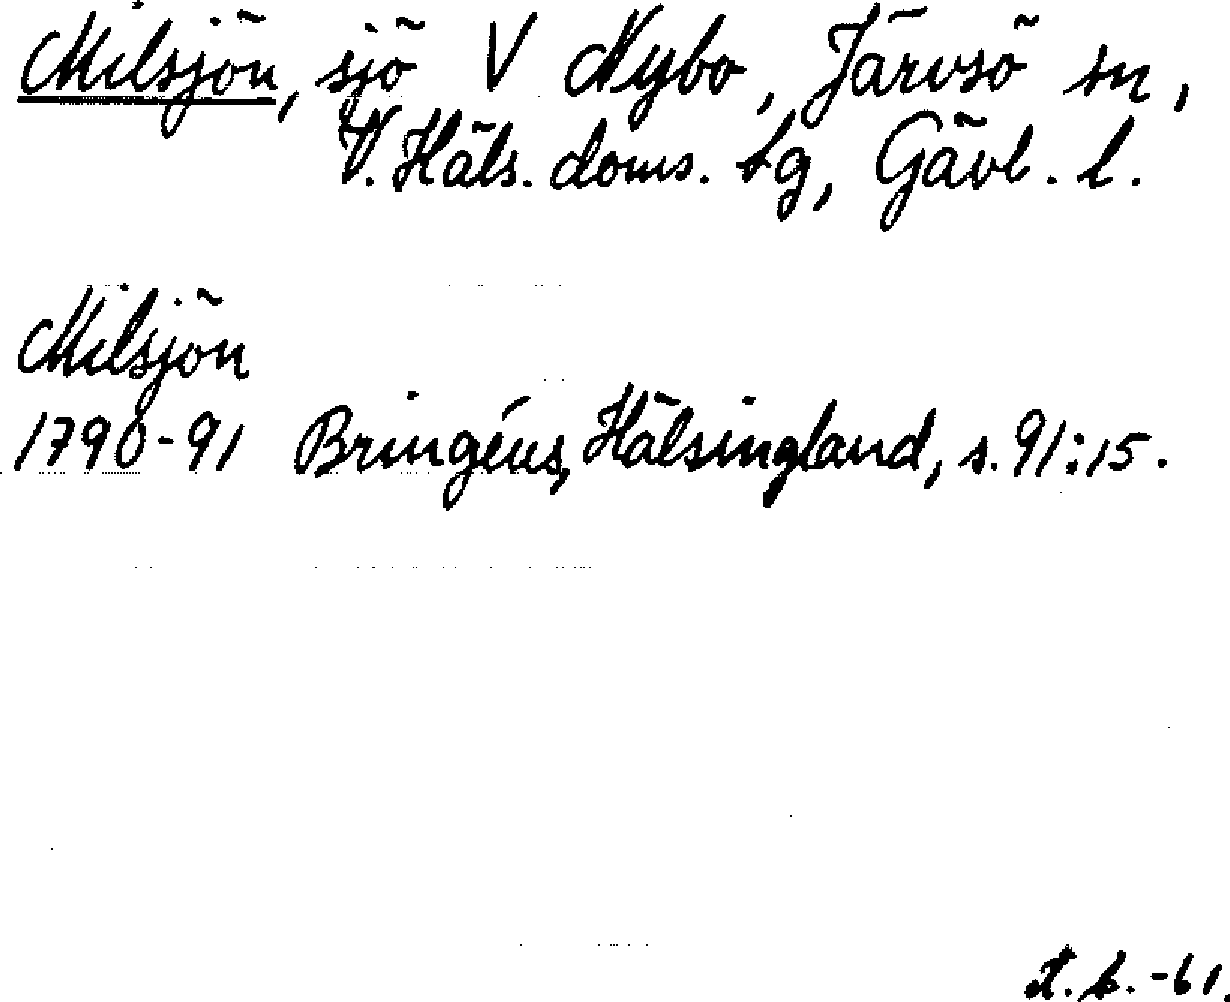 Milsjön, sjö V Nybo, Järvsö sn,
V. Häls. doms. tg, Gävl. l.
Milsjön
1790-91 Bringéus, Hälsingland, s. 91:15.
-61.